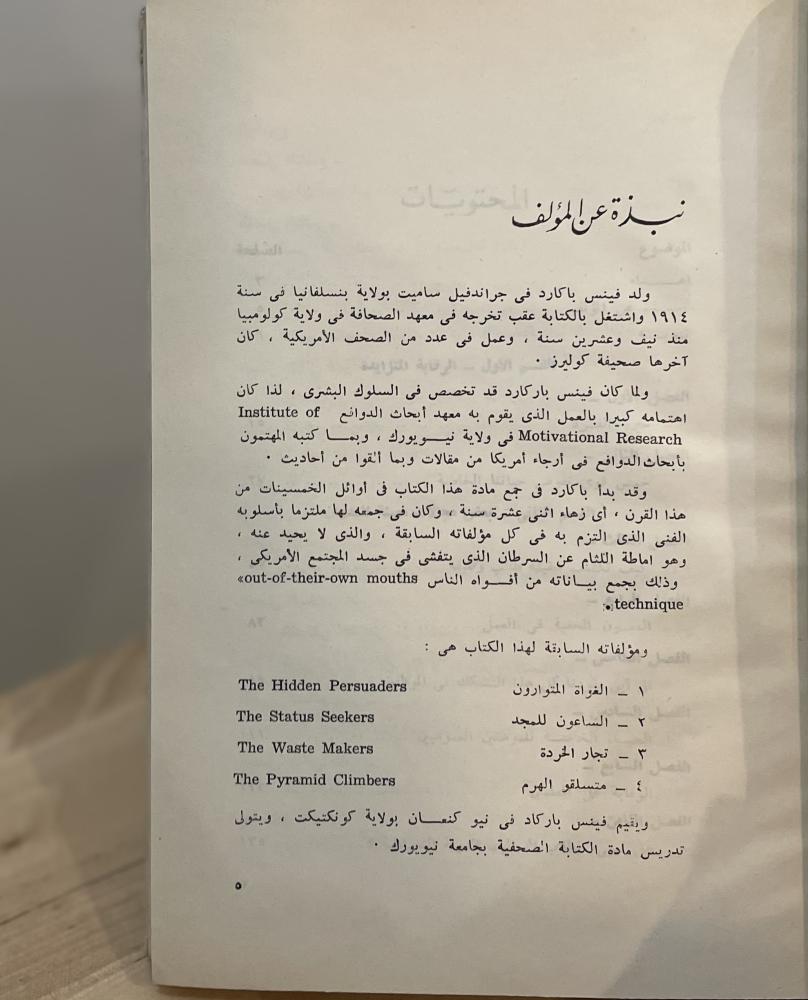 نبذة عن المؤلف
ولد فينس باكارد فى جراندفيل ساميت بولاية بنسلفانيا فى سنة
١٩١٤ واشتغل بالكتابة عقب تخرجه فى معهد الصحافة فى ولاية كولومبيا
منذ نيف وعشرين سنة ، وعمل فى عدد من الصحف الأمريكية ، كان
آخرها صحيفة كوليرز ·
ولما كان فينس باركارد قد تخصص فى السلوك البشرى ، لذا كان
اهتمامه كبيرا بالعمل الذى يقوم به معهد أبحاث الدوافع Institute of
Motivational Research فى ولاية نيـويورك ، وبمـا كتبه المهتمون
بأبحاث الدوافع فى أرجاء أمريكا من مقالات وبما ألقوا من أحاديث ·
وقد بدأ باكارد فى جمع مادة هذا الكتاب فى أوائل الخمسينات من
هذا القرن ، أى زهاء اثنى عشرة سنة ، وكان فى جمعه لها ملتزما بأسلوبه
الفنى الذى التزم به فى كل مؤلفاته السابقة ، والذى لا يحيد عنه ،
وهو اماطة اللثام عن السرطان الذى يتفشى فى جسد المجتمع الأمريكى ،
وذلك بجمع بيـاناته من أفـواه الناس out-of-their-own mouths»
technique
ومؤلفاته السابقة لهذا الكتاب هى :
١ ـ الغواة المتوارون The Hidden Persuaders
٢ ـ الساعون للمجد The Status Seekers
٣ ـ تجار الخردة The Waste Makers
٤ ـ متسلقو الهرم The Pyramid Climbers
ويقيم فينس باركاد فى نيو كنعـان بولاية كونكتيكت ، ويتولى
تدريس مادة الكتابة الصحفية بجامعة نيويورك ·
٥